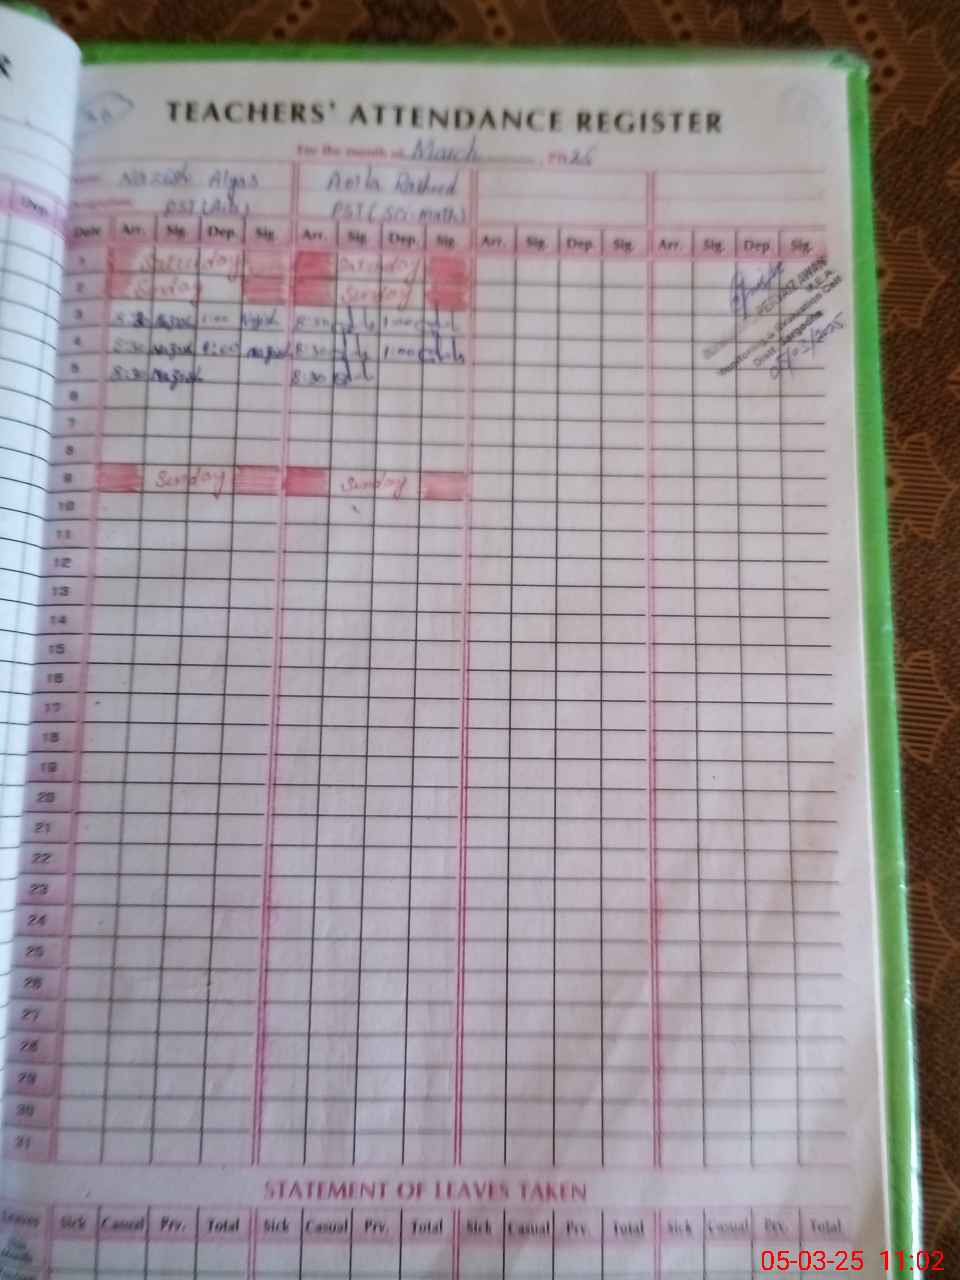 TEACHERS' ATTENDANCE REGISTER
For the month of March 2025
Nazish
PST (Arts) PST (Sci-math)
Date Arr. Sig. Dep. Sig. Arr. Sig. Dep. Sig. Arr. Sig. Dep. Sig. Arr. Sig. Dep. Sig.
1 Saturday Saturday
2 Sunday Sunday
3 8:30 Nazish 1:00 Nazish 8:30 1:00
4 8:30 Nazish 1:00 Nazish 8:30 1:00
5 8:30 Nazish 8:30
6
7
8
9 Sunday Sunday
10
11
12
13
14
15
16
17
18
19
20
21
22
23
24
25
26
27
28
29
30
31
PERVAIZ AWAN
M.E.A.
Monitoring & Evaluation Cell
Distt. Sargodha
05/03/2025
STATEMENT OF LEAVES TAKEN
Leaves Sick Casual Prv. Total Sick Casual Prv. Total Sick Casual Prv. Total Sick Casual Prv. Total
05-03-25 11:02